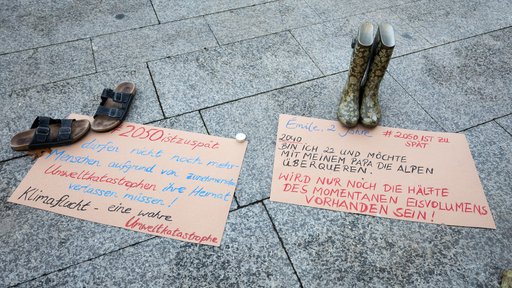 2050istzuspät
dürfen nicht noch mehr
Menschen aufgrund von zunehmenden
Umweltkatastrophen ihre Heimat
verlassen müssen!
Klimaflucht - eine wahre
Umweltkatastrophe
Emilie, 2 Jahre
#2050 IST ZU
SPÄT
2040
BIN ICH 22 UND MÖCHTE
MIT MEINEM PAPA DIE ALPEN
ÜBERQUEREN.
WIRD NUR NOCH DIE HÄLFTE
DES MOMENTANEN EISVOLUMENS
VORHANDEN SEIN!